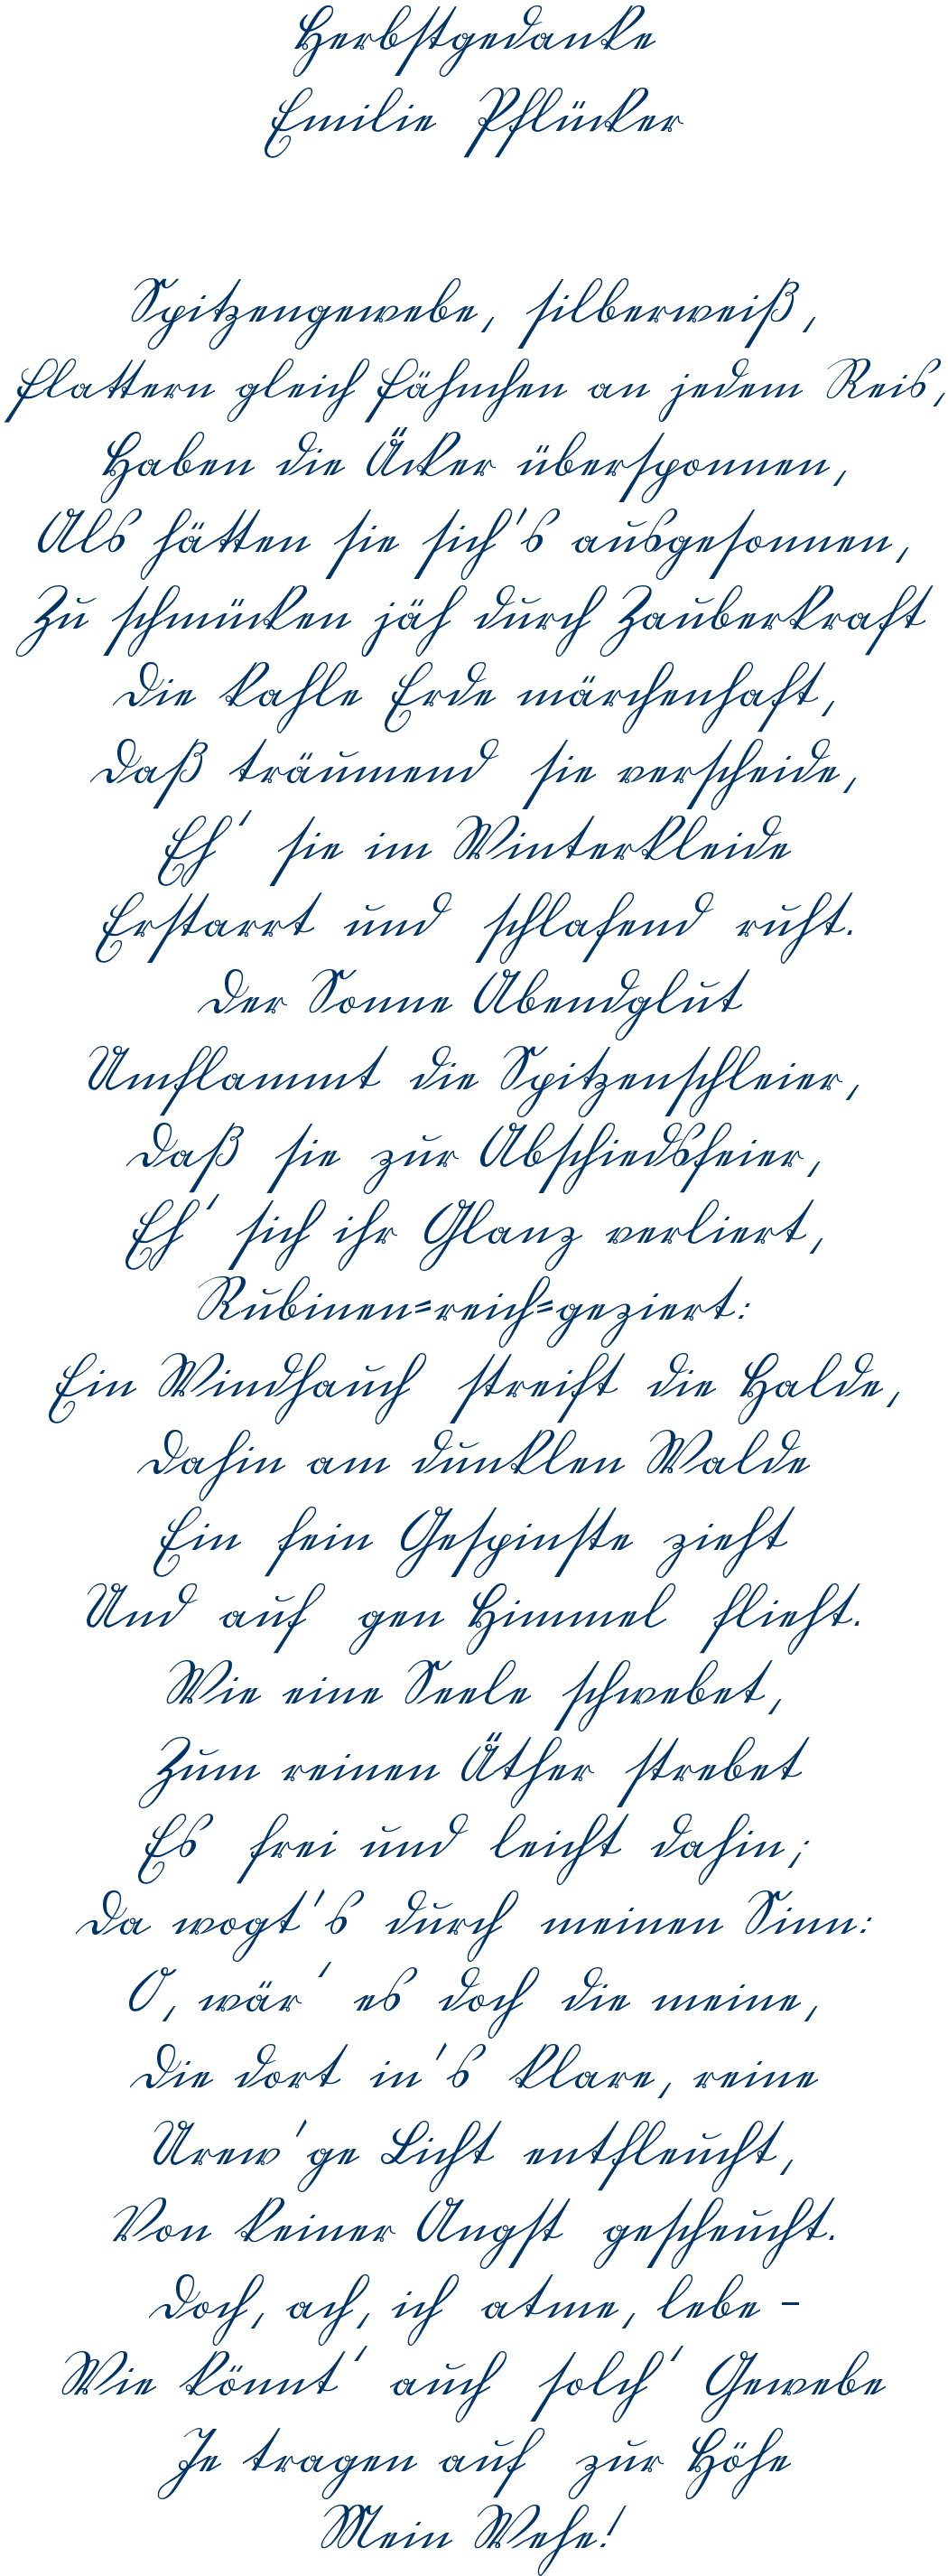 Herbstgedanke
Emilie Pflücker
Spitzengewebe, silberweiß,
Flattern gleich Fähnchen an jedem Reis,
Haben die Äcker übersponnen,
Als hätten sie sich's ausgesonnen,
Zu schmücken jäh durch Zauberkraft
Die kahle Erde märchenhaft,
Daß träumend sie verscheide,
Eh' sie im Winterkleide
Erstarrt und schlafend ruht.
Der Sonne Abendglut
Umflammt die Spitzenschleier,
Daß sie zur Abschiedsfeier,
Eh' sich ihr Glanz verliert,
Rubinen=reich=geziert:
Ein Windhauch streift die Halde,
Dahin am dunklen Walde
Ein fein Gespinste zieht
Und auf gen Himmel flieht.
Wie eine Seele schwebet,
Zum reinen Äther strebet
Es frei und leicht dahin;
Da wogt's durch meinen Sinn:
O, wär' es doch die meine,
Die dort in's klare, reine
Urew'ge Licht entfleucht,
Von keiner Angst gescheucht.
Doch, ach, ich atme, lebe –
Wie könnt' auch solch' Gewebe
Je tragen auf zur Höhe
Mein Wehe!